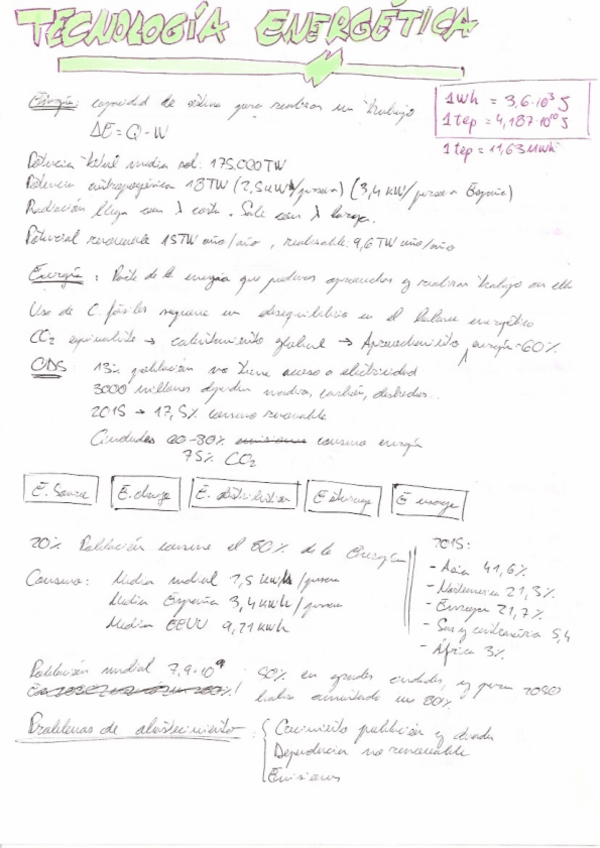 TECNOLOGÍA ENERGÉTICA
Energía: capacidad de sistema para realizar un trabajo
ΔE = Q - W
1 Wh = 3,6·10³ J
1 tep = 4,187·10¹⁰ J
1 tep = 11,63 MWh
Potencia total media sol: 175.000 TW
Potencia antropogénica 18TW (2,5kW/persona) (3,4 kW/persona España)
Radiación llega con λ corta. Sale con λ larga.
Potencial renovable 15TW año/año, realizable: 9,6 TW año/año
: Parte de la energía que podemos aprovechar y realizar trabajo con ella
Uso de C. fósiles requiere un desequilibrio en el balance energético
CO₂ equivalente → calentamiento global → Aprovechamiento energía ~60%
ODS 13% población no tiene acceso a electricidad
3000 millones dependen madera, carbón, desechos...
2015 → 17,5% consumo renovable
Ciudades 60-80% consumo energía
75% CO₂
E. Source E. charge E. distribution E storage E usage
20% Población consume el 80% de la Energía
Consumo: Media mundial 2,5 kWh/persona
Media España 3,4 kWh/persona
Media EEUU 9,21 kWh
2015:
- Asia 41,6%
- Norteamerica 21,3%
- Europa 21,7%
- Sur y centroamérica 5,4
- África 3%
Población mundial 7,9·10⁹ 50% en grandes ciudades, y para 2050
habrá aumentado un 80%
Problemas de abastecimiento: Crecimiento población y demanda
Dependencia no renovable
Emisiones